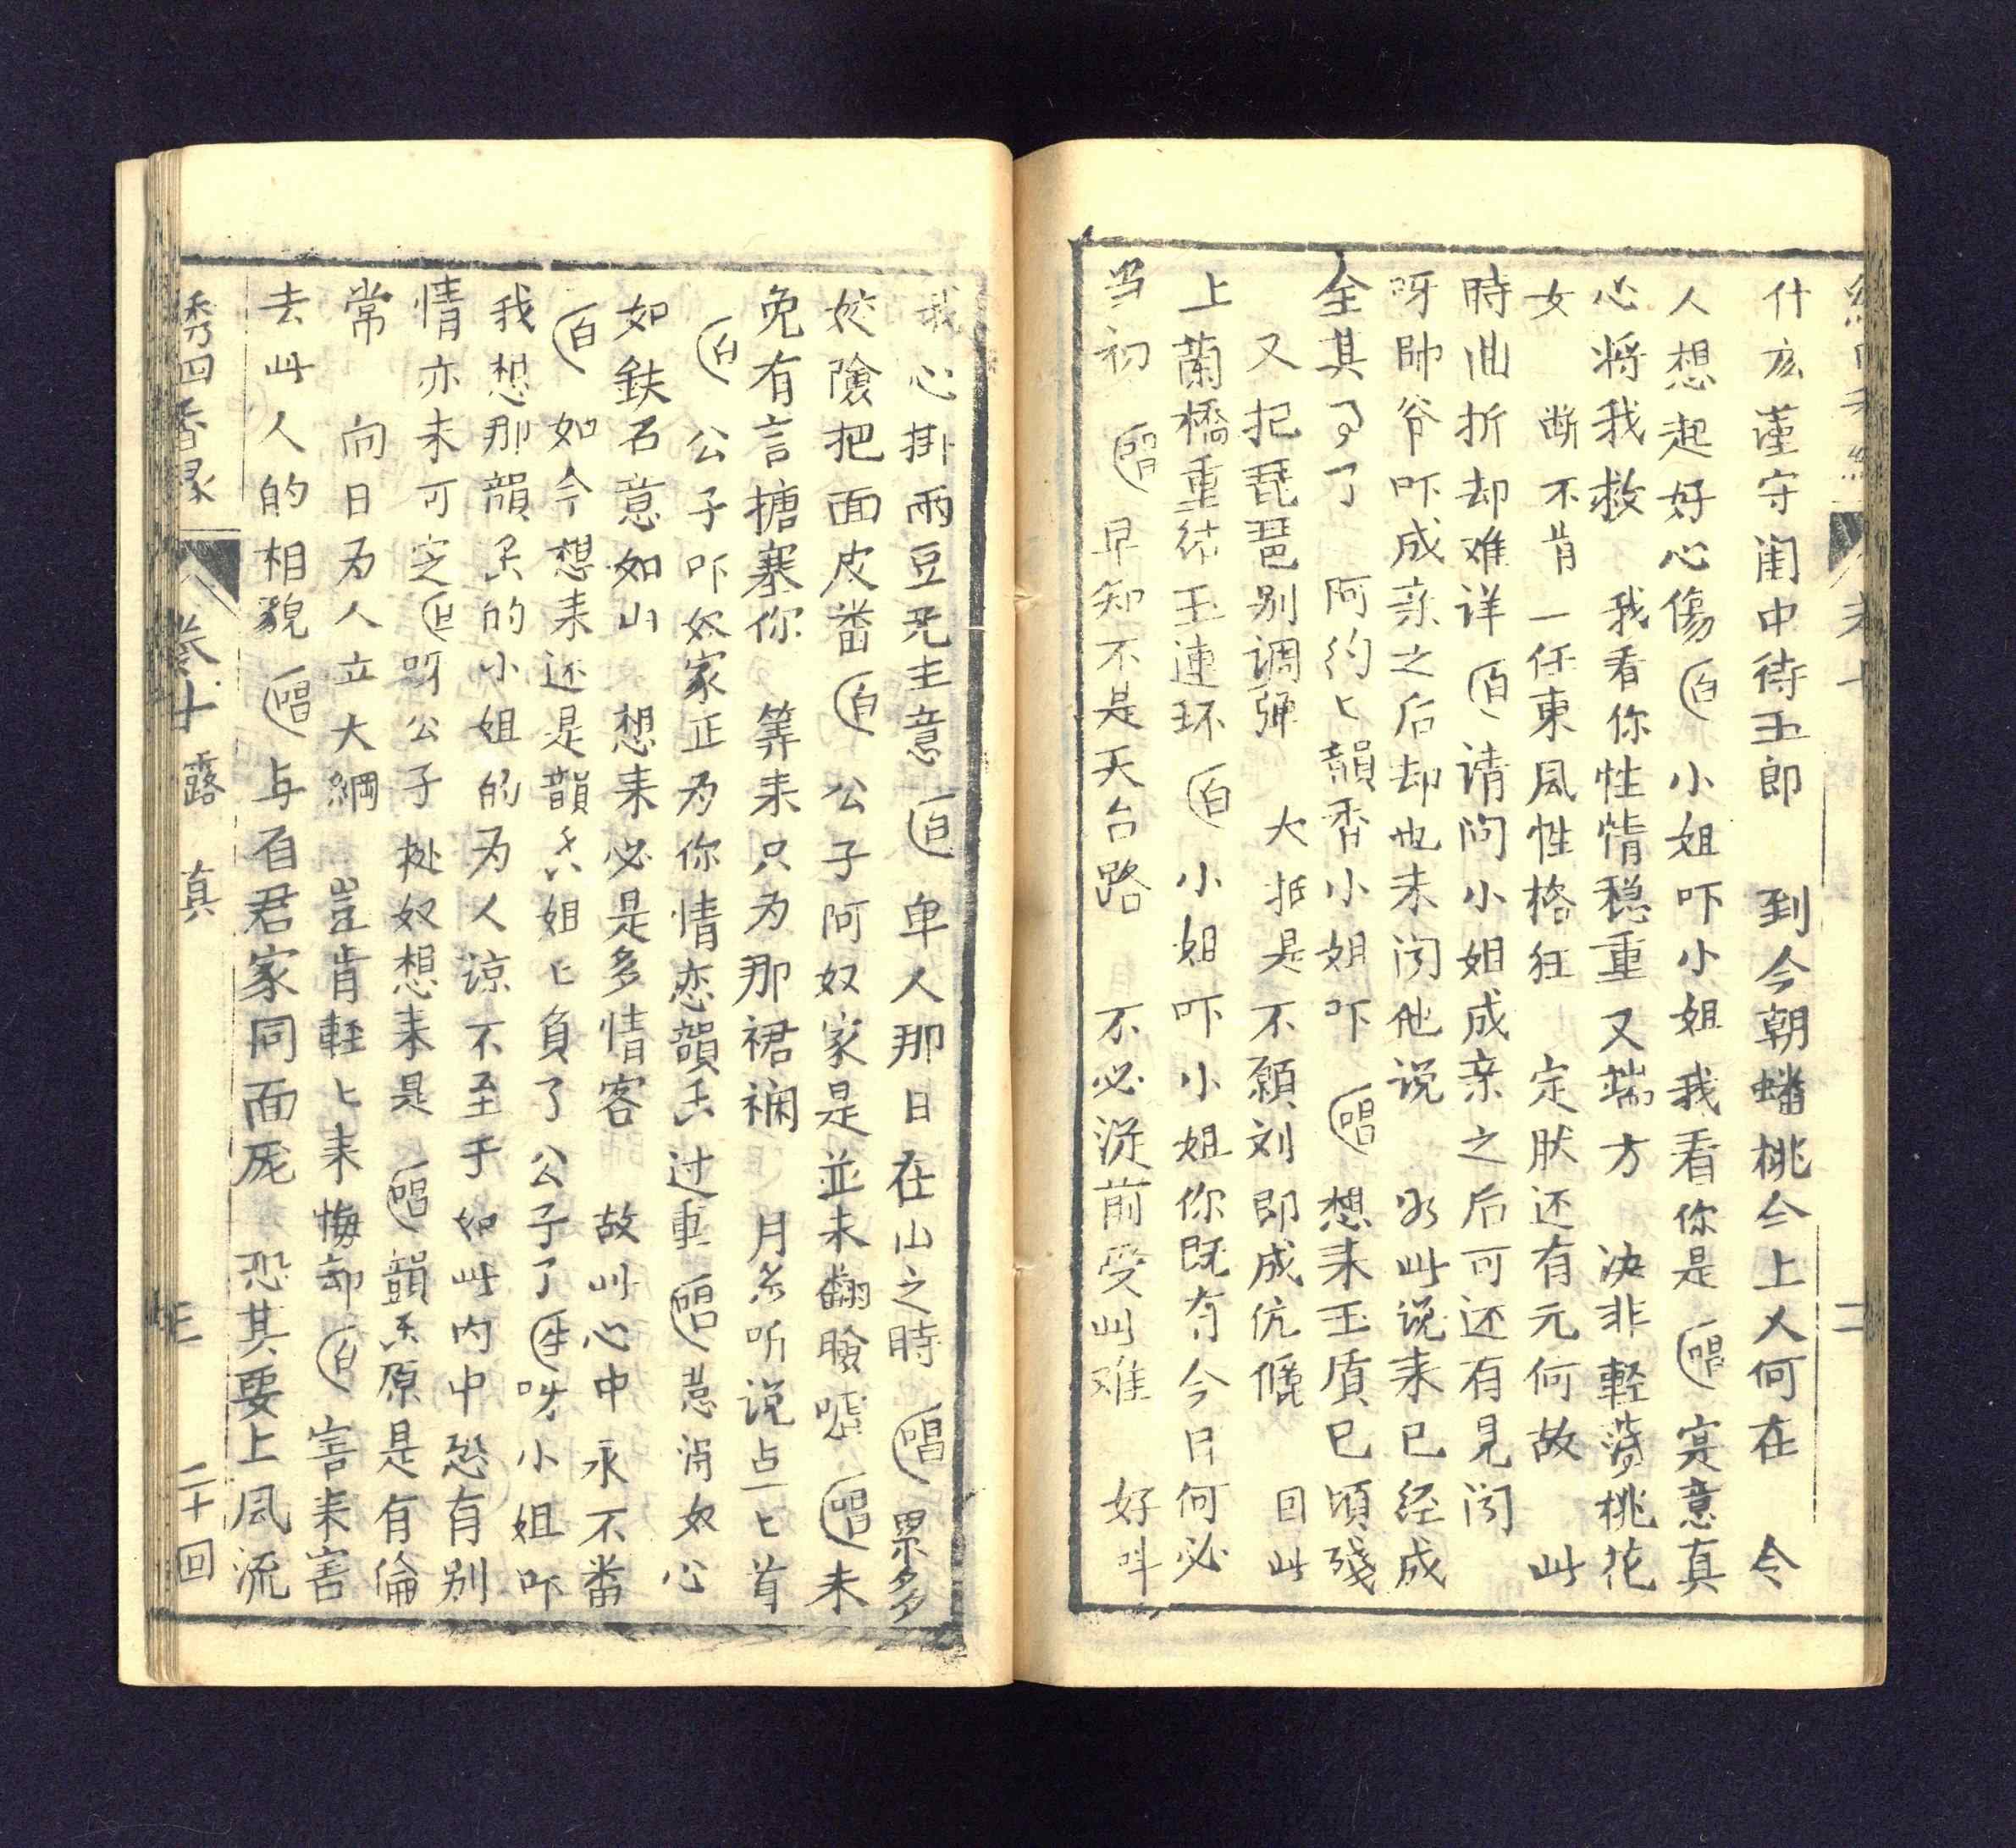 什広謹守闺中待玉郎 到今朝蟠桃会上人何在 令
人想起好心傷 白 小姐吓小姐我看你是 唱 寔意真
心将我救 我看你性情穏重又端方 决非輕薄桃花
女 断不肯一任東風性格狂 定肰还有元何故 此
時曲折却难详 白 请问小姐成亲之后可还有見闻
呀帥爷吓成亲之后却也未闻他说 如此说来已经成
全其事了 阿约〻韻香小姐吓 唱 想来玉質已頃殘
又把琵琶别调弹 大抵是不願刘郎成伉儷 回此
上蘭橋重结玉連环 白 小姐吓小姐你既有今日何必
当初 唱 早知不是天台路 不必从前受此难 好叫
我心掛兩豆无主意 白 単人那日在山之時 唱 累多
姣隂把面皮畨 白 公子阿奴家是並未翻臉嘘 唱 未
免有言搪塞你 筭来只为那裙襕 月香听说点〻首
白 公子吓奴家正为你情恋韻香过重 唱 惹淂奴心
如鉄石意如山 想来必是多情客 故此心中永不畨
白 如今想来还是韻香姐〻負了公子了 生 呀小姐吓
我想那韻香的小姐的为人谅不至于如此内中恐有别
情亦未可定 旦 呀公子 抛奴想来是 唱 韻香原是有倫
常 向日为人立大綱 豈肯輕〻来悔却 白 害来害
去此人的相貌 唱 与百君家同面庞 恐其要上風流
绣四香缘 卷十 露真 三 二十回